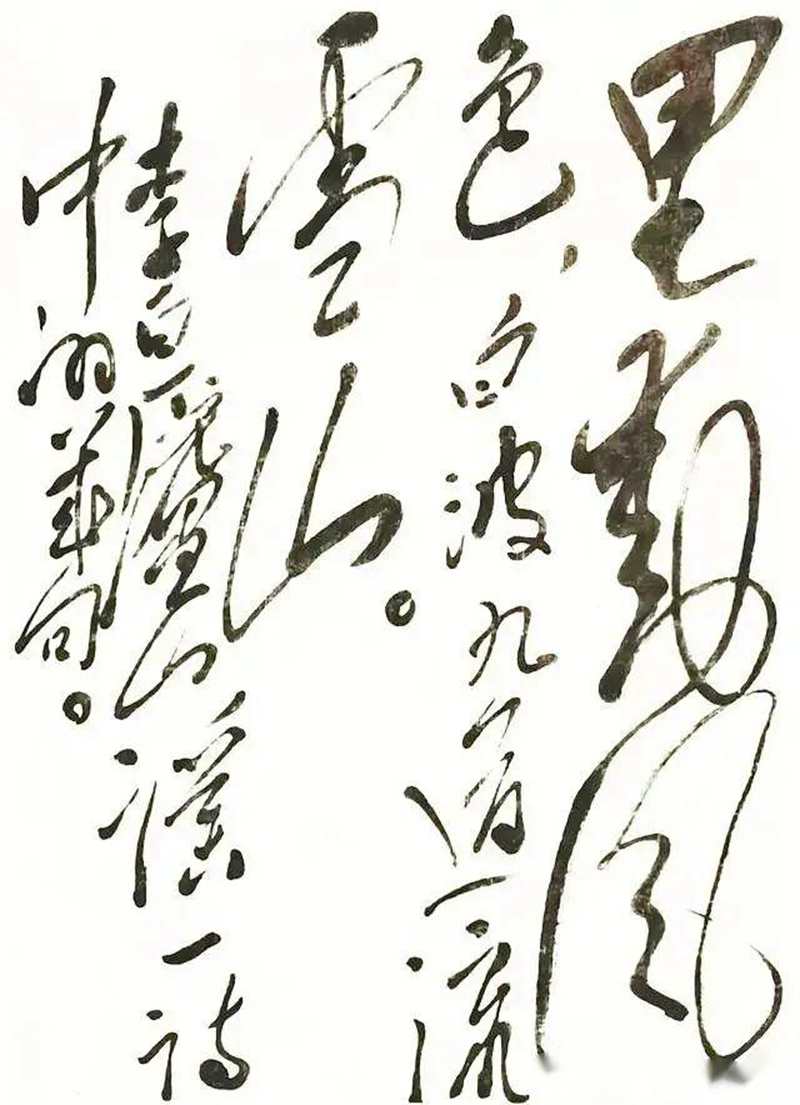 里動風
色，白波九道流
雪山。
李白廬山謠一詩
中的幾句。